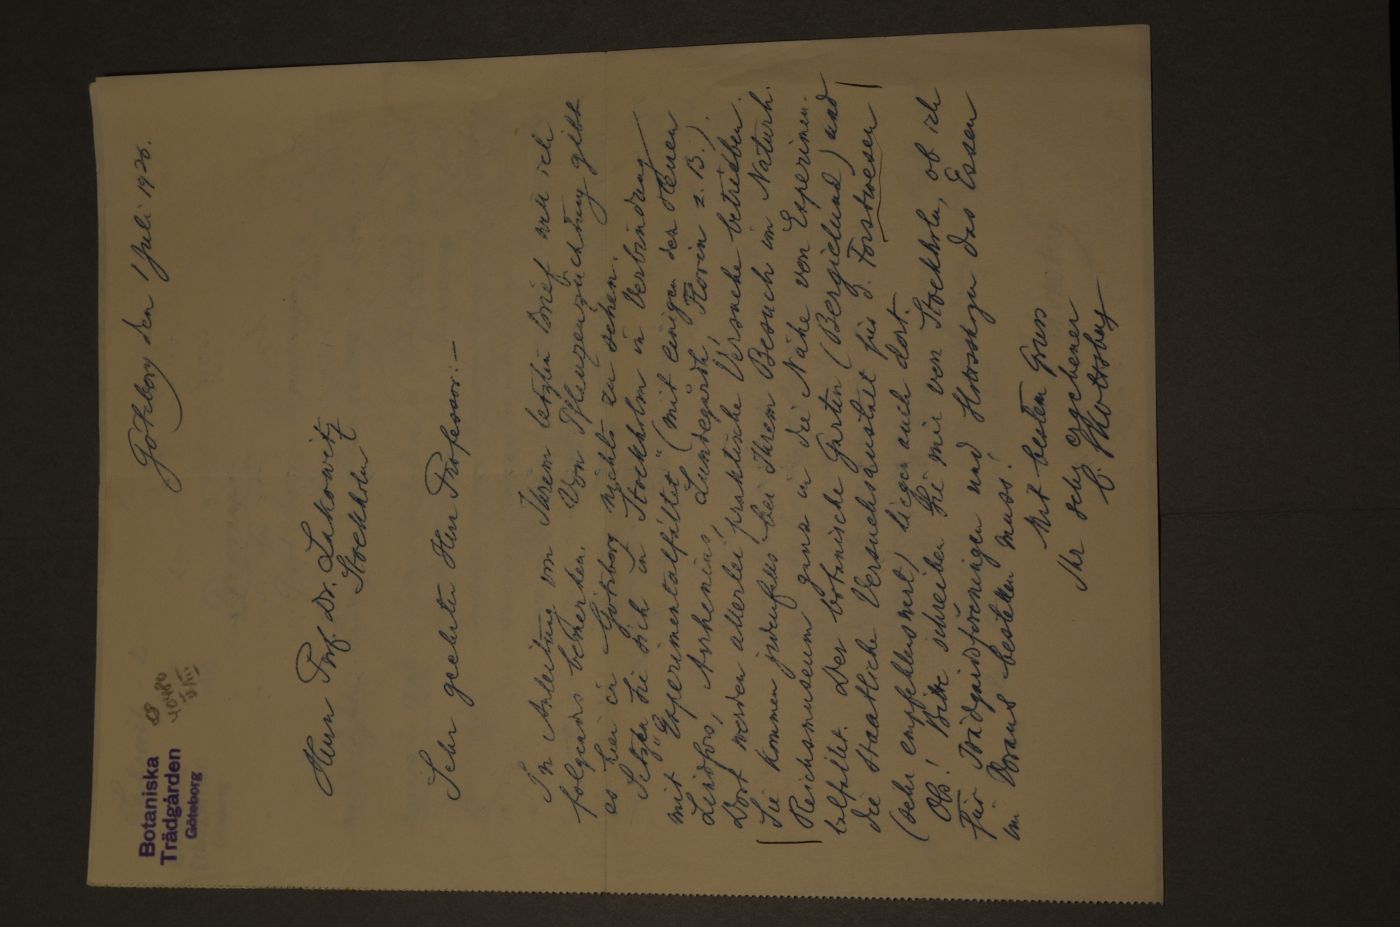 Botaniska
Trädgården
Göteborg
Göteborg den 1 Juli 1926.
Herrn Prof. Dr. Lakowitz
Stockholm
Sehr geehrter Herr Professor:—
In Anleitung von Ihrem letzten Brief will ich
folgends bemerken. Von Pflanzenzüchtung gibt
es hier in Göteborg nichts zu sehen.
Setzen Sie sich in Stockholm in Verbindung
mit "Experimentalfältet" (mit einigen der Herren
Lindfors, Arrhenius, Lundegårdh, Florin z. B.).
Dort werden allerlei praktische Versuche betrieben.
Sie kommen jedenfalls bei Ihrem Besuch im Naturh.
Reichsmuseum ganz in die Nähe von Experimen-
talfältet. Der botanische Garten (Bergielund) und
die staatliche Versuchsanstalt für d. Forstwesen
(sehr empfehlenswert) liegen auch dort.
Obs! Bitte schreiben Sie mir von Stockholm, ob ich
für Trädgårdsföreningen und das Essen
im Voraus bestellen muss!
Mit bestem Gruss
Ihr sehr ergebener
C. Skottsberg